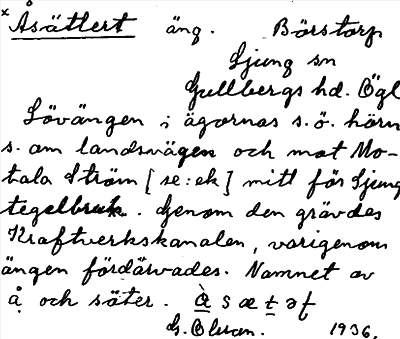 × Åsätlert äng. Börstorp
Ljung sn
Gullbergs hd. Ögl
Lövängen i ägornas s.ö. hörn
s. om landsvägen och mot Mo-
tala Ström [se: ek] mitt för Ljung
tegelbruk. Genom den grävdes
Kraftverkskanalen, varigenom
ängen fördärvades. Namnet av
å och säter. 
1936.